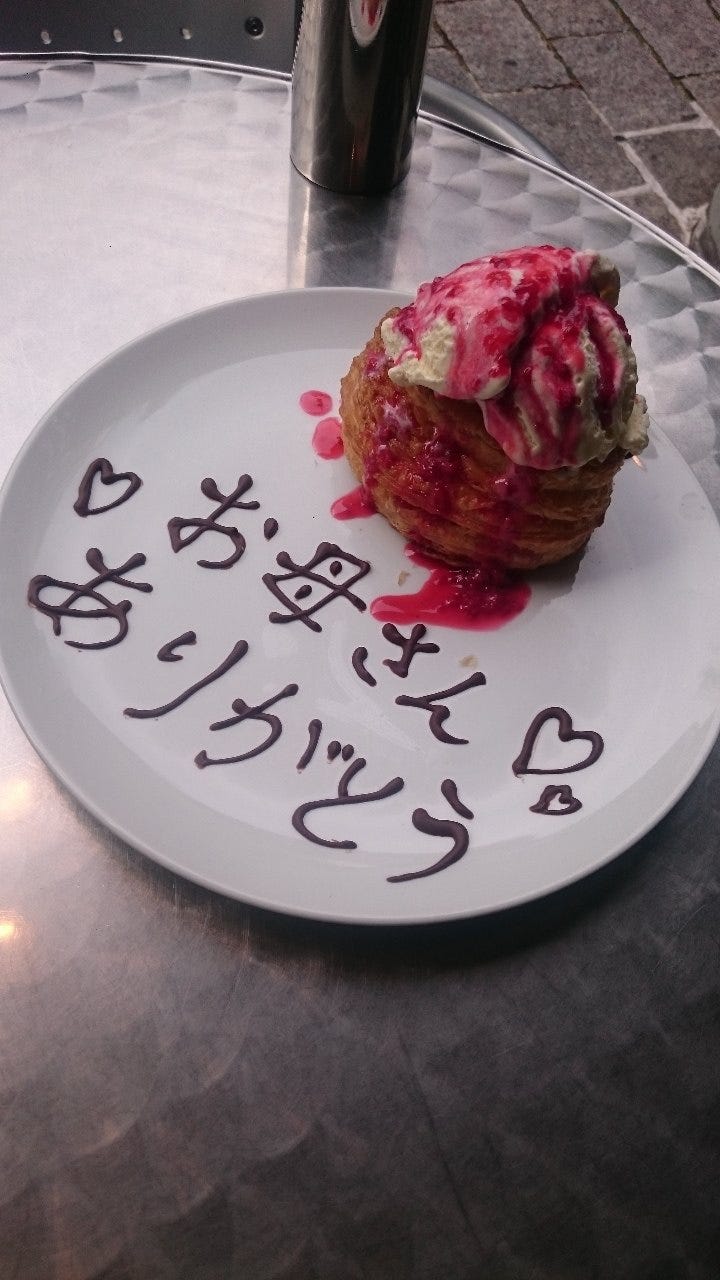 ♡お母さん
ありがとう♡♡